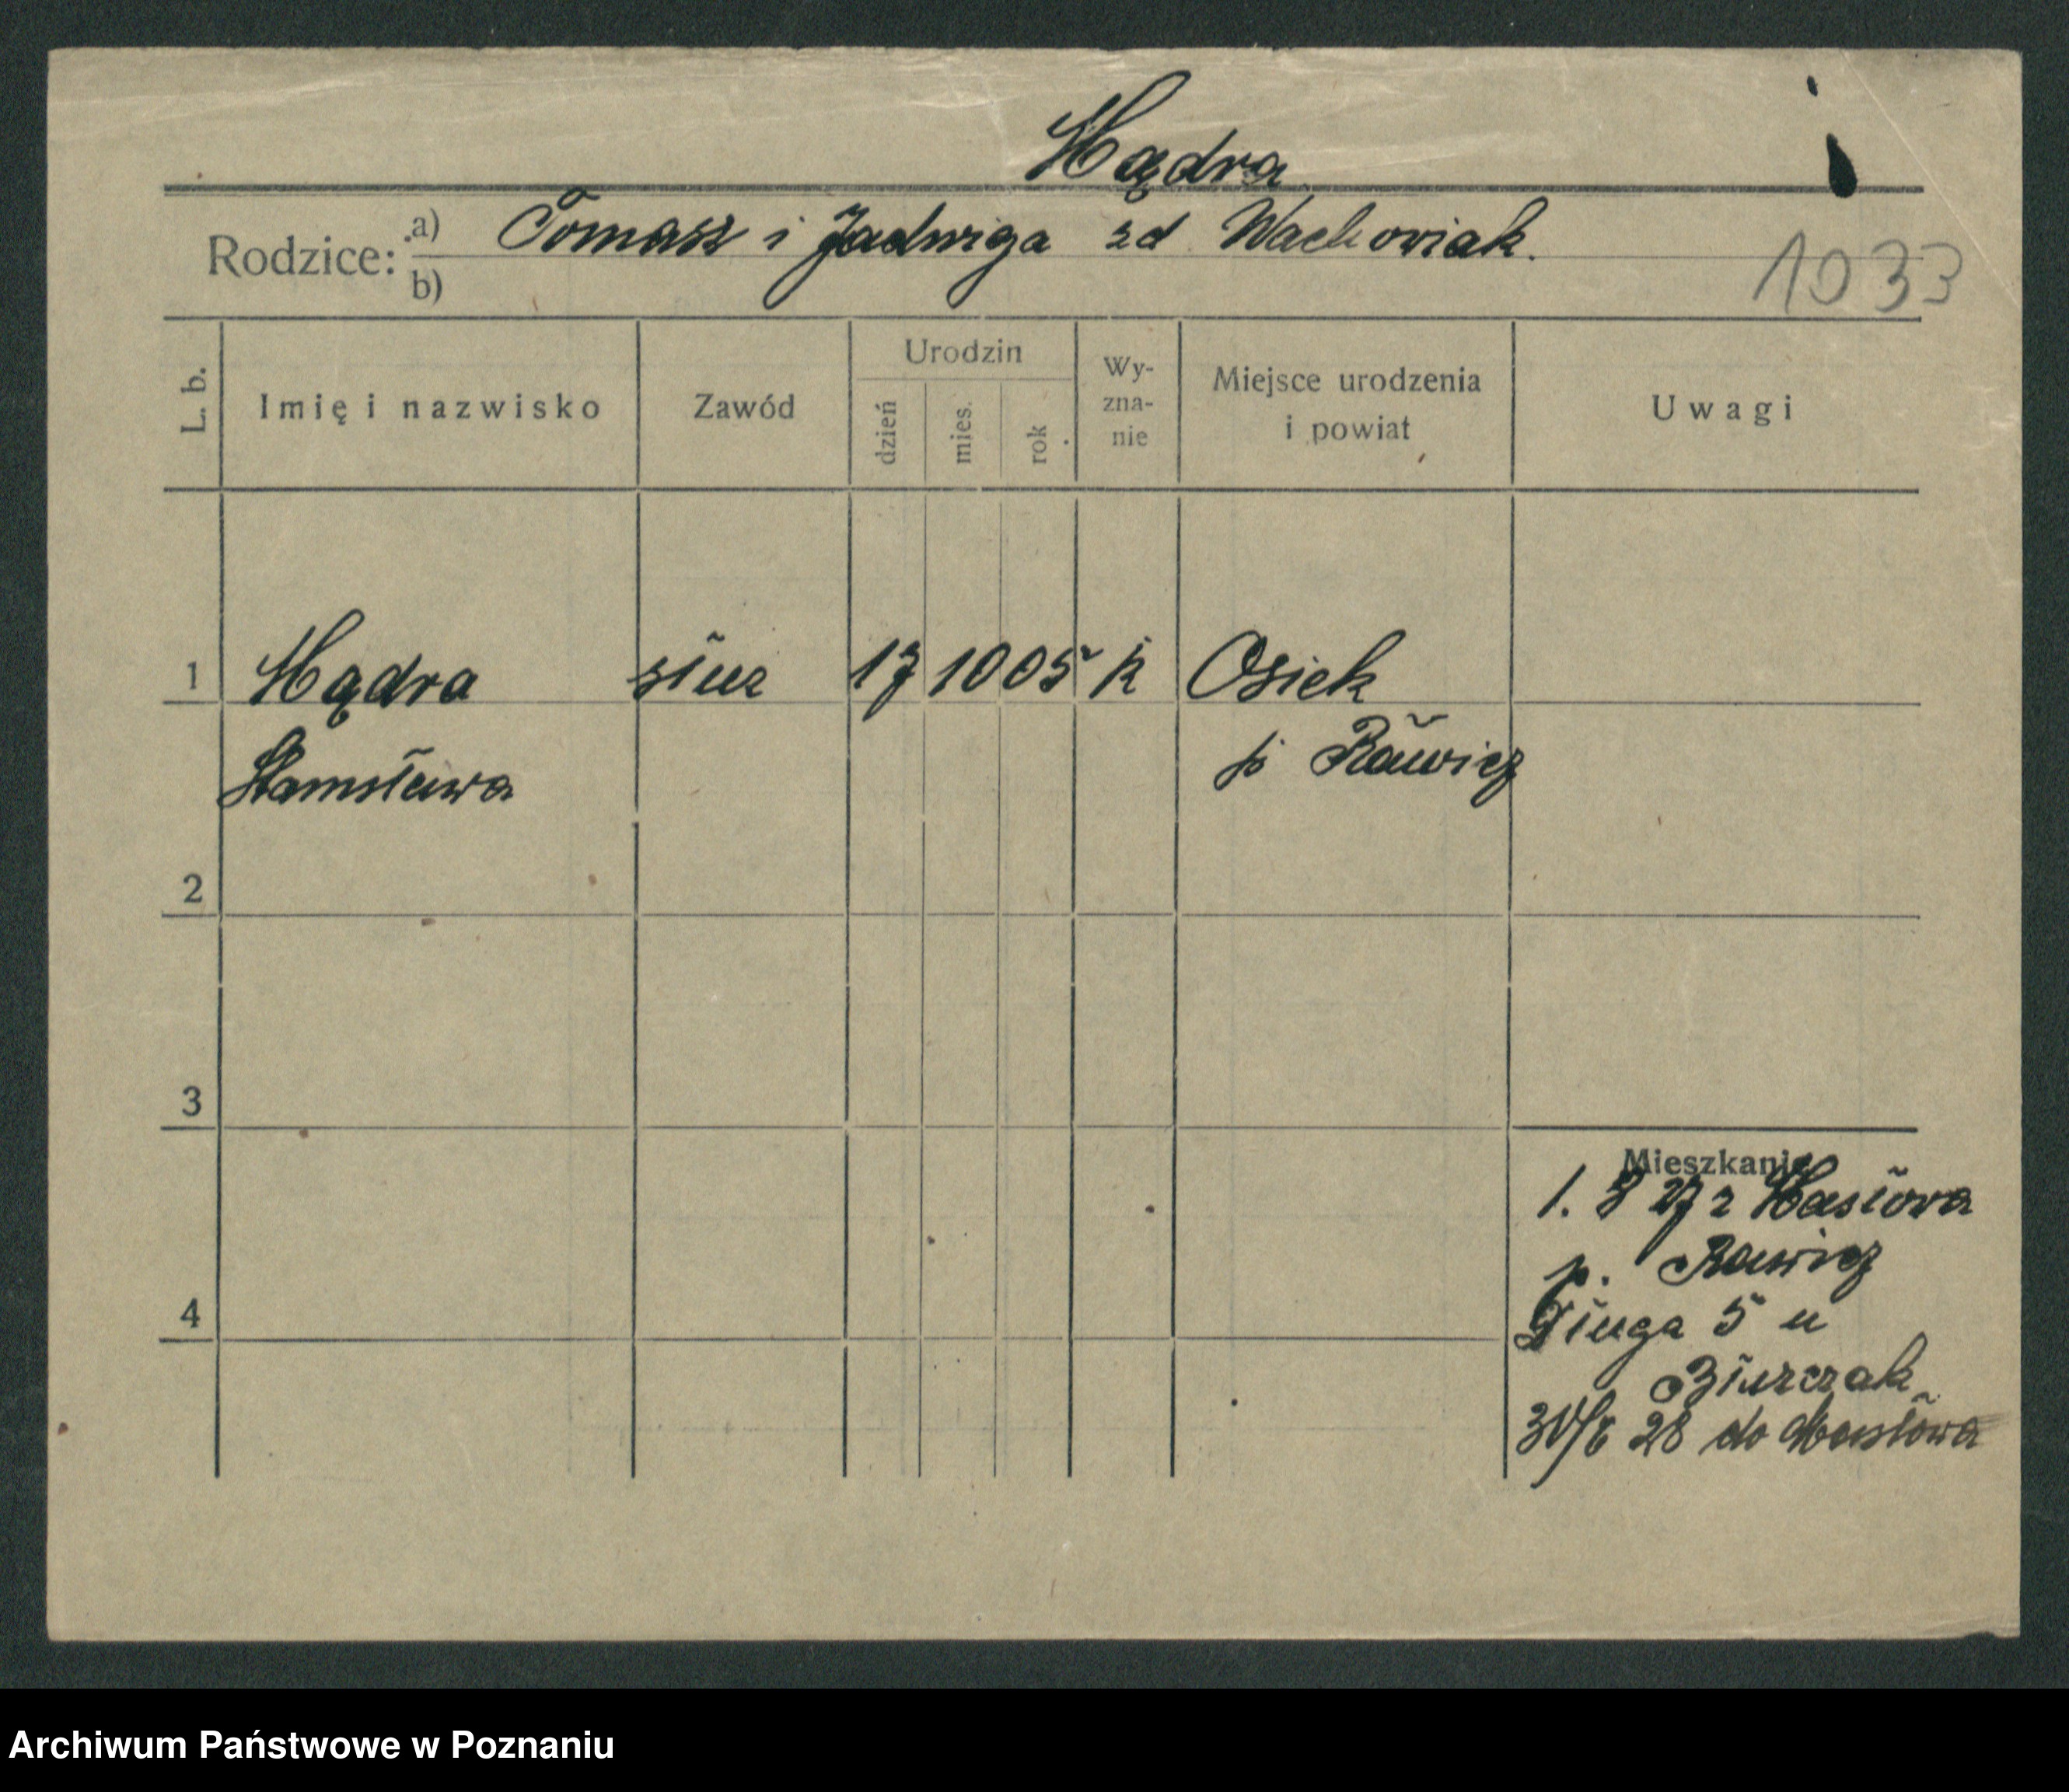 Mądra
Rodzice: a) Tomasz i Jadwiga zd Wachowiak.
b)
1033
L. b.
Imię i nazwisko
Zawód
Urodzin
dzień
mies.
rok
Wy-
zna-
nie
Miejsce urodzenia
i powiat
Uwagi
1 Mądra służ 17 10 05 k Osiek
Stanisława p Rawicz
2
3
4
Mieszkanie
1. 8 27 z Masłowa
p. Rawicz
Długa 5 u
28 do Masłowa
Archiwum Państwowe w Poznaniu